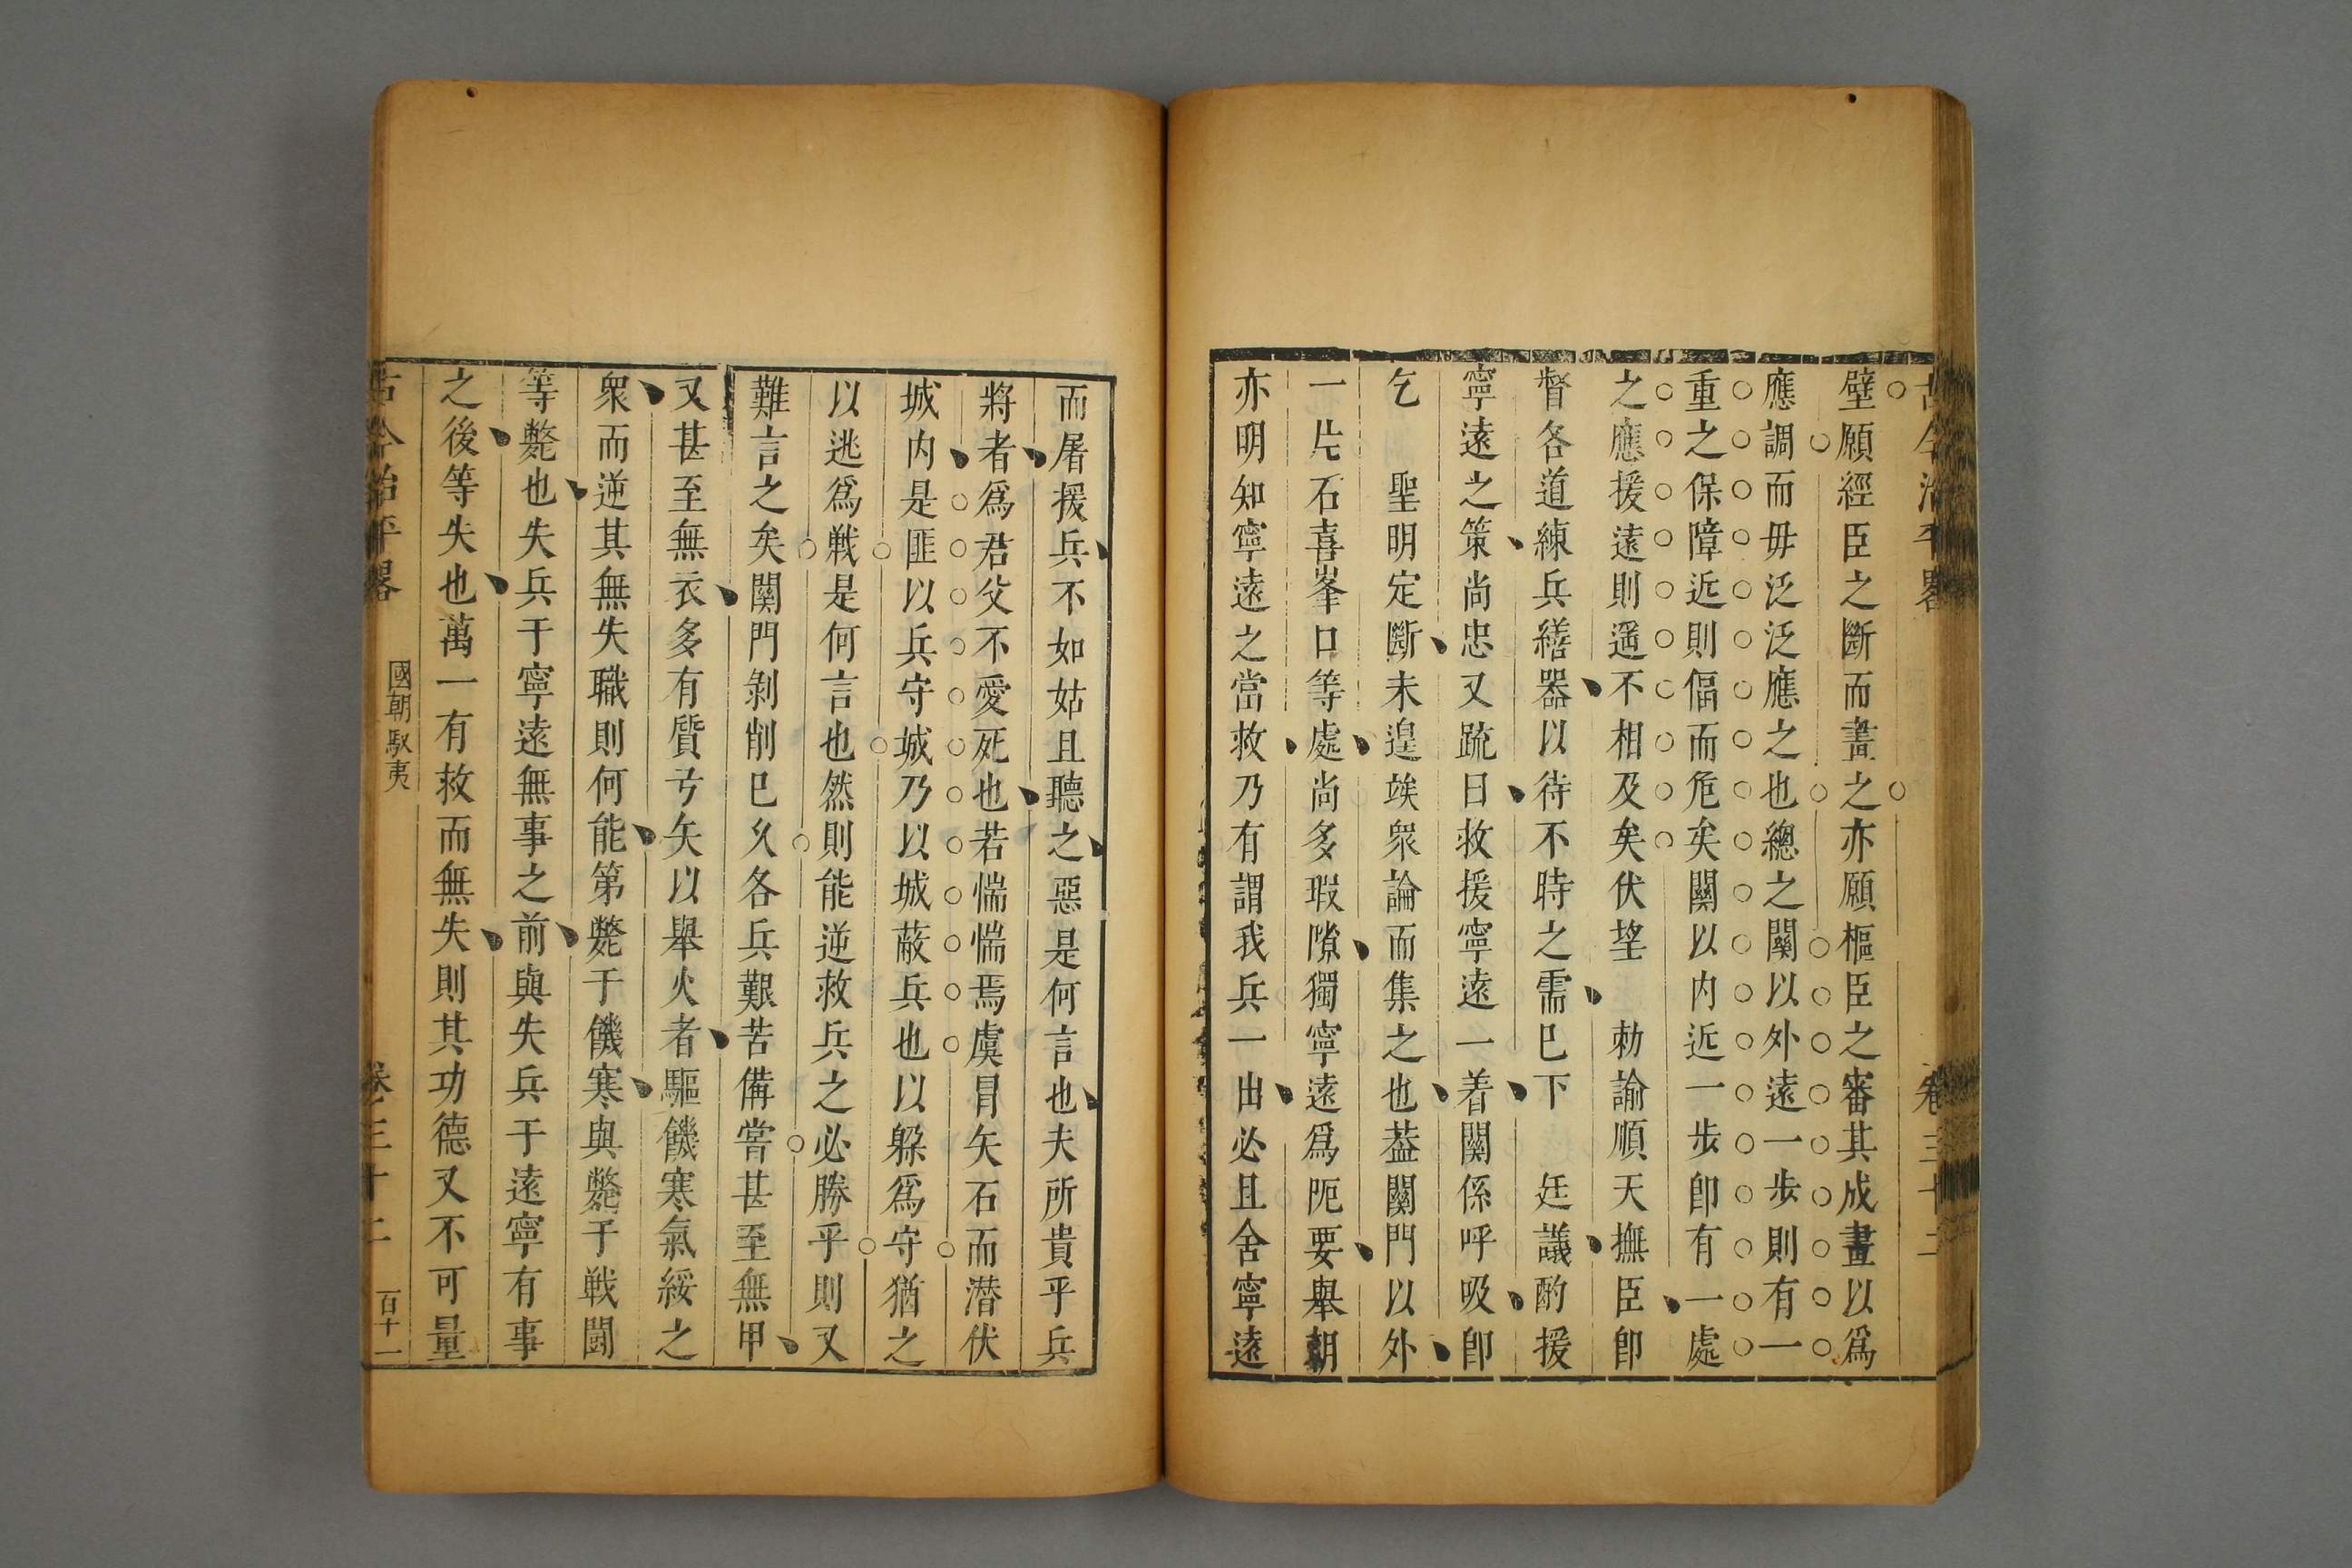 古今治平畧 卷三十二
壁願經臣之斷而畫之亦願樞臣之審其成畫以爲
應調而毋泛泛應之也總之關以外遠一步則有一
重之保障近則偪而危矣關以內近一步卽有一處
之應援遠則遥不相及矣伏望 勑諭順天撫臣卽
督各道練兵繕器以待不時之需已下 廷議酌援
寧遠之策尚忠又疏曰救援寧遠一着關係呼吸卽
乞 聖明定斷未遑竢衆論而集之也葢關門以外
一片石喜峯口等處尚多瑕隙獨寧遠爲阨要舉朝
亦明知寧遠之當救乃有謂我兵一出必且舍寧遠
而屠援兵不如姑且聽之惡是何言也夫所貴乎兵
將者爲君父不愛死也若惴惴焉虞冒矢石而潜伏
城内是匪以兵守城乃以城蔽兵也以躱爲守猶之
以逃爲戦是何言也然則能逆救兵之必勝乎則又
難言之矣關門剝削已久各兵艱苦備嘗甚至無甲
又甚至無衣多有質弓矢以舉火者驅饑寒氣綏之
衆而逆其無失職則何能第斃于饑寒與斃于戦鬪
等斃也失兵于寧遠無事之前與失兵于遠寧有事
之後等失也萬一有救而無失則其功德又不可量
古今治平畧 國朝馭夷 卷三十二 百十一